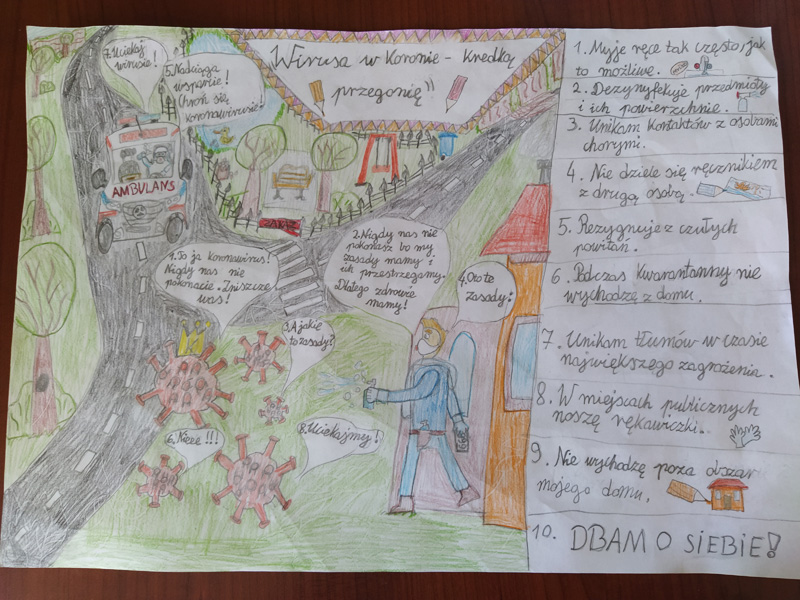 Wirusa w Koronie - Kredką
przegonię"
7. Uciekaj
wirusie!
5. Nadciąga
wsparcie!
Chroń się
koronawirusie!
AMBULANS
ZAKAZ
1. To ja koronawirus!
Nigdy nas nie
pokonacie. Zniszczę
was!
2. Nigdy nas nie
pokonasz bo my
zasady mamy i
ich przestrzegamy.
Dlatego zdrowie
mamy!
3. A jakie
to zasady?
4. Oto te
zasady:
6. Nieee!!!
8. Uciekajmy!
1. Myję ręce tak często jak
to możliwe.
2. Dezynfekuję przedmioty
i ich powierzchnie.
3. Unikam kontaktów z osobami
chorymi.
4. Nie dziele się ręcznikiem
z drugą osobą.
5. Rezygnuję z czułych
powitań.
6. Podczas kwarantanny nie
wychodzę z domu.
7. Unikam tłumów w czasie
największego zagrożenia.
8. W miejscach publicznych
noszę rękawiczki.
9. Nie wychodzę poza obszar
mojego domu.
10. DBAM O SIEBIE!